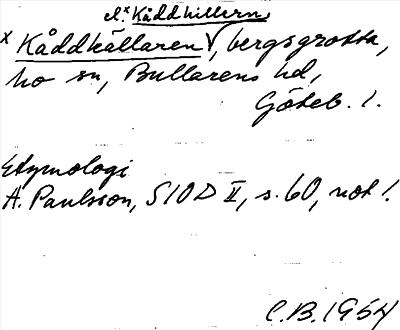 el. ˣKåddhillern
ˣ Kåddkällaren, bergsgrotta,
Mo sn, Bullarens hd,
Göteb. l.
Etymologi
A. Paulsson, SIOD II, s. 60, not 1.
C.B. 1954